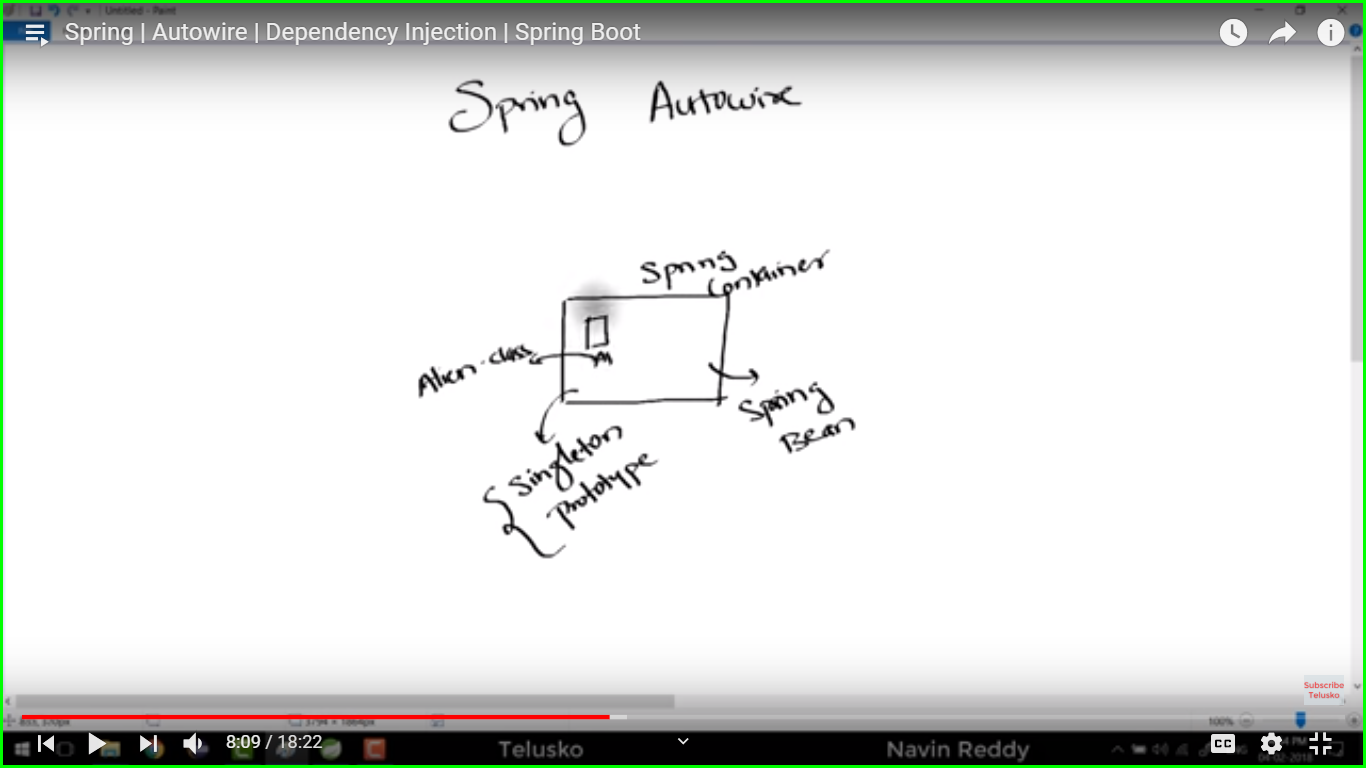 Untitled - Paint
Spring | Autowire | Dependency Injection | Spring Boot
Spring Autowire
Spring
Container
Alien.class
Spring
Bean
Singleton
Prototype
Subscribe
Telusko
100%
8:09 / 18:22
Telusko
Navin Reddy
CC
04-02-2018